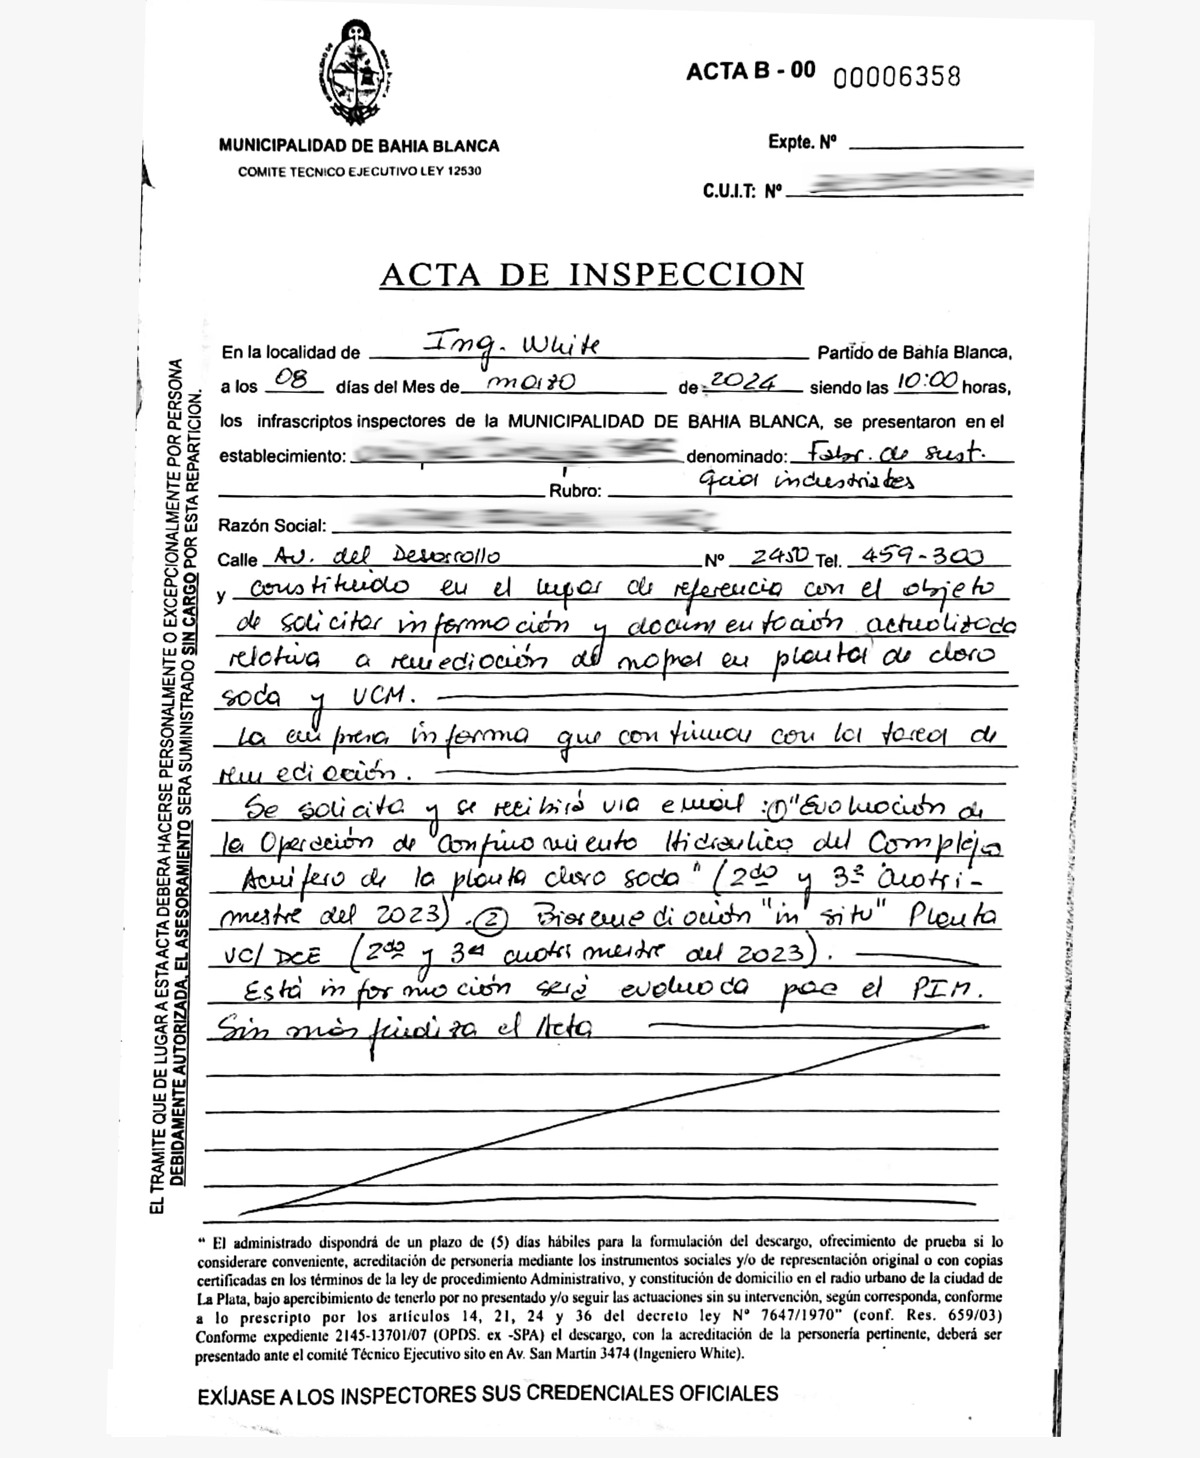 ACTA B - 00 00006358
MUNICIPALIDAD DE BAHIA BLANCA
COMITE TECNICO EJECUTIVO LEY 12530
Expte. Nº
C.U.I.T: Nº
ACTA DE INSPECCION
En la localidad de Ing. White Partido de Bahía Blanca,
a los 08 días del Mes de marzo de 2024 siendo las 10:00 horas,
los infrascriptos inspectores de la MUNICIPALIDAD DE BAHIA BLANCA, se presentaron en el
establecimiento: denominado: Fabr. de sust.
Rubro: industriales
Razón Social:
Calle Av. del Desarrollo Nº 2450 Tel. 459-300
y constituido en el lugar de referencia con el objeto
de solicitar información y documentación actualizada
relativa a remediación de napas en plantas de cloro
soda y VCM.
La empresa informa que continuan con las tareas de
remediación.
Se solicita y se recibirá via email : ① "Evaluación de
la Operación de Confinamiento Hidraulico del Complejo
Acuifero de la planta cloro soda" (2do y 3º Cuatri-
mestre del 2023). ② Bioremediación "in situ" Planta
VC/DCE (2do y 3er cuatrimestre del 2023).
Está información será evaluada por el PIM.
Sin más finaliza el Acta
EL TRAMITE QUE DE LUGAR A ESTA ACTA DEBERA HACERSE PERSONALMENTE O EXCEPCIONALMENTE POR PERSONA
DEBIDAMENTE AUTORIZADA. EL ASESORAMIENTO SERA SUMINISTRADO SIN CARGO POR ESTA REPARTICION.
" El administrado dispondrá de un plazo de (5) días hábiles para la formulación del descargo, ofrecimiento de prueba si lo
considerare conveniente, acreditación de personería mediante los instrumentos sociales y/o de representación original o con copias
certificadas en los términos de la ley de procedimiento Administrativo, y constitución de domicilio en el radio urbano de la ciudad de
La Plata, bajo apercibimiento de tenerlo por no presentado y/o seguir las actuaciones sin su intervención, según corresponda, conforme
a lo prescripto por los artículos 14, 21, 24 y 36 del decreto ley Nº 7647/1970" (conf. Res. 659/03)
Conforme expediente 2145-13701/07 (OPDS. ex -SPA) el descargo, con la acreditación de la personería pertinente, deberá ser
presentado ante el comité Técnico Ejecutivo sito en Av. San Martín 3474 (Ingeniero White).
EXÍJASE A LOS INSPECTORES SUS CREDENCIALES OFICIALES